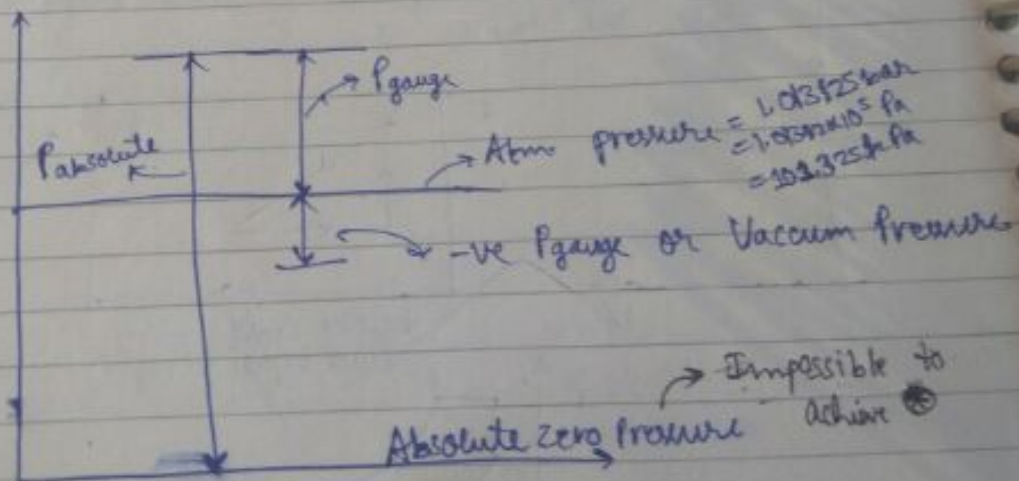 Pgauge
Pabsolute
Atm pressure = 1.01325 bar
= 1.01325x10⁵ Pa
= 101.325 k Pa
-ve Pgauge or Vaccum Pressure
Impossible to
achive
Absolute zero Pressure